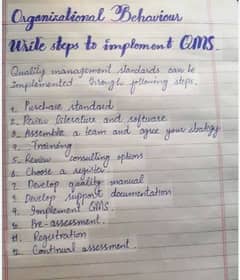 Organisational Behaviour
Write steps to implement QMS.
Quality management standards can be
Implemented through following steps.
1. Purchase standard
2. Review Literature and software
3. Assemble a team and agree your strategy
4. Training
5. Review consulting options
6. Choose a register
7. Develop quality manual
8. Develop support documentation
9. Implement QMS.
10. Pre-assessment.
11. Registration
12. Continual assessment.